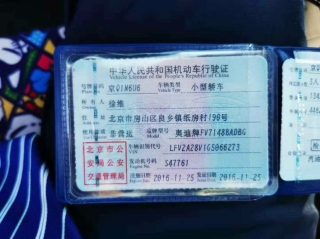 中华人民共和国机动车行驶证
Vehicle License of the People's Republic of China
号牌号码 京Q1M6U6 车辆类型 小型轿车
Plate No. Vehicle Type
所有人 徐维
Owner
住址 北京市房山区良乡镇纸房村198号
Address
使用性质 非营运 品牌型号 奥迪牌FV7148BADBG
Model
北京市公
安局公安
交通管理局
车辆识别代号 LFV2A28V1G5066273
VIN
发动机号码 S47761
Engine No.
注册日期 2016-11-25 发证日期 2016-11-25